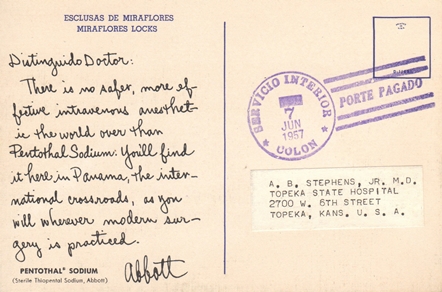 ESCLUSAS DE MIRAFLORES
MIRAFLORES LOCKS
Distinguido Doctor:
There is no safer, more ef-
fective intravenous anesthet-
ic the world over than
Pentothal Sodium. You'll find
it here, in Panama, the inter-
national crossroads, as you
will wherever modern sur-
gery is practiced.
Abbott
PENTOTHAL® SODIUM
(Sterile Thiopental Sodium, Abbott)
SERVICIO INTERIOR
7
JUN
1957
COLON
PORTE PAGADO
A. B. STEPHENS, JR. M.D.
TOPEKA STATE HOSPITAL
2700 W. 6TH STREET
TOPEKA, KANS. U. S. A.